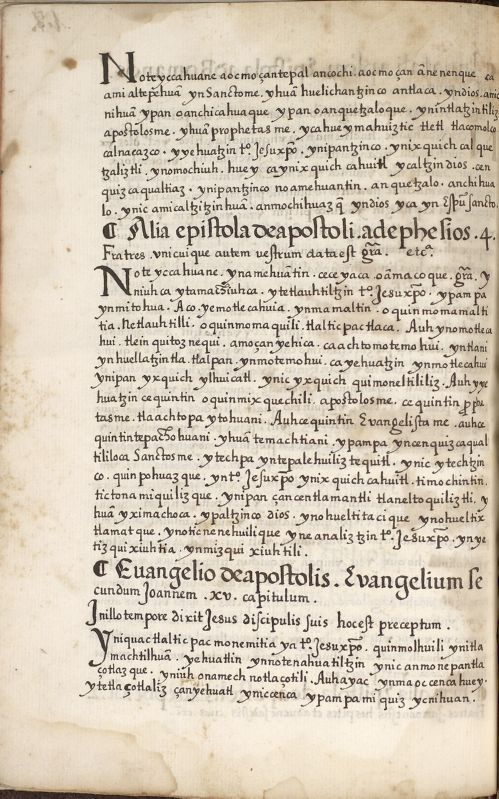 Note yccahuane aocmo çantepal ancochi. aocmo çan ānenenque ca
ami altepehuā ynSanctome. yhuā huelichantzinco antlaca. yndios. amic
nihuā ypan oanchicahuaque ypan oanquetzaloque. ynintlatzintiliz
apostolosme. yhuā prophetasme, ycahueymahuiztic tletl tlacomolo
calnacazco. yyehuatzin tº. Jesuxpo. ynipantzinco. ynixquich cal que
tzaliztli. ynomochiuh. huey caynixquich cahuitl ycaltzin dios. cen
quizcaqualtiaz. ynipantzinco noamehuantin. anquetzalo. anchihua
lo. ynic amicaltzitzinhuā. anmochihuazq̄ yndios yca yn Espū sancto.
¶ Alia epistola de apostoli. ad ephesios. 4.
Fratres. vnicuique autem vestrum data est gr̄a. etc.
Note yccahuane. ynamehuātin. ceceyaca. oāmacoque. gr̄a. y
niuhca ytamachiuhca. ytetlauhtiltzin tº. Jesuxpo. ypampa
ynmitohua. Aco. yemotlecahuia. ynmamaltin. oquinmomamalti
tia. netlauhtilli. oquinmomaquili. tlalticpactlaca. Auh ynomotleca
hui. tlein quitoznequi. amoçanyehica. caachtomotemohui. yntlani
ynhuellatzintla. tlalpan. ynmotemohui. cayehuatzin ynmotlecahui
ynipan yxquich ylhuicatl. ynic yxquich quimoneltililiz. Auh yye
huatzin cequintin oquinmixquechili. apostolosme. cequintin prophe
tasme. tlaachtopaytohuani. Auh cequintin Evangelistame. auhce
quintin tepachohuani. yhuā temachtiani. ypampa yncenquizcaqual
tililoca Sanctosme. ytechpa yntepalehuiliztequitl. ynic ytechtzin
co. quinpohuazque. yn tº. Jesuxpo ynixquich cahuitl. timochintin.
tictonamiquilizque. ynipan çancentlamantli tlaneltoquiliztli. y
huā yximachoca. ypaltzinco dios. ynohueltitacique ynohueltix
tlamatque. ynoticnenehuilique yneanaliztzin tº. Jesuxpo. ynye
tizquixiuhtia. ynmizquixiuhtili.
¶ Euangelio de apostolis. Evangelium se
cundum Joannem. xv. capitulum.
In illo tempore dixit Jesus discipulis suis hoc est preceptum.
Yniquac tlalticpac monemitia ya tº. Jesuxpo. quinmolhuili ynitla
machtilhuā. yehuatlin ynnotenahuatiltzin ynic anmonepantla
çotlazque. yniuh onamechnotlaçotili. Auh ayac ynma oc cenca huey.
ytetlaçotlaliz çanyehuatl yniccenca ypampamiquiz ycnihuan.